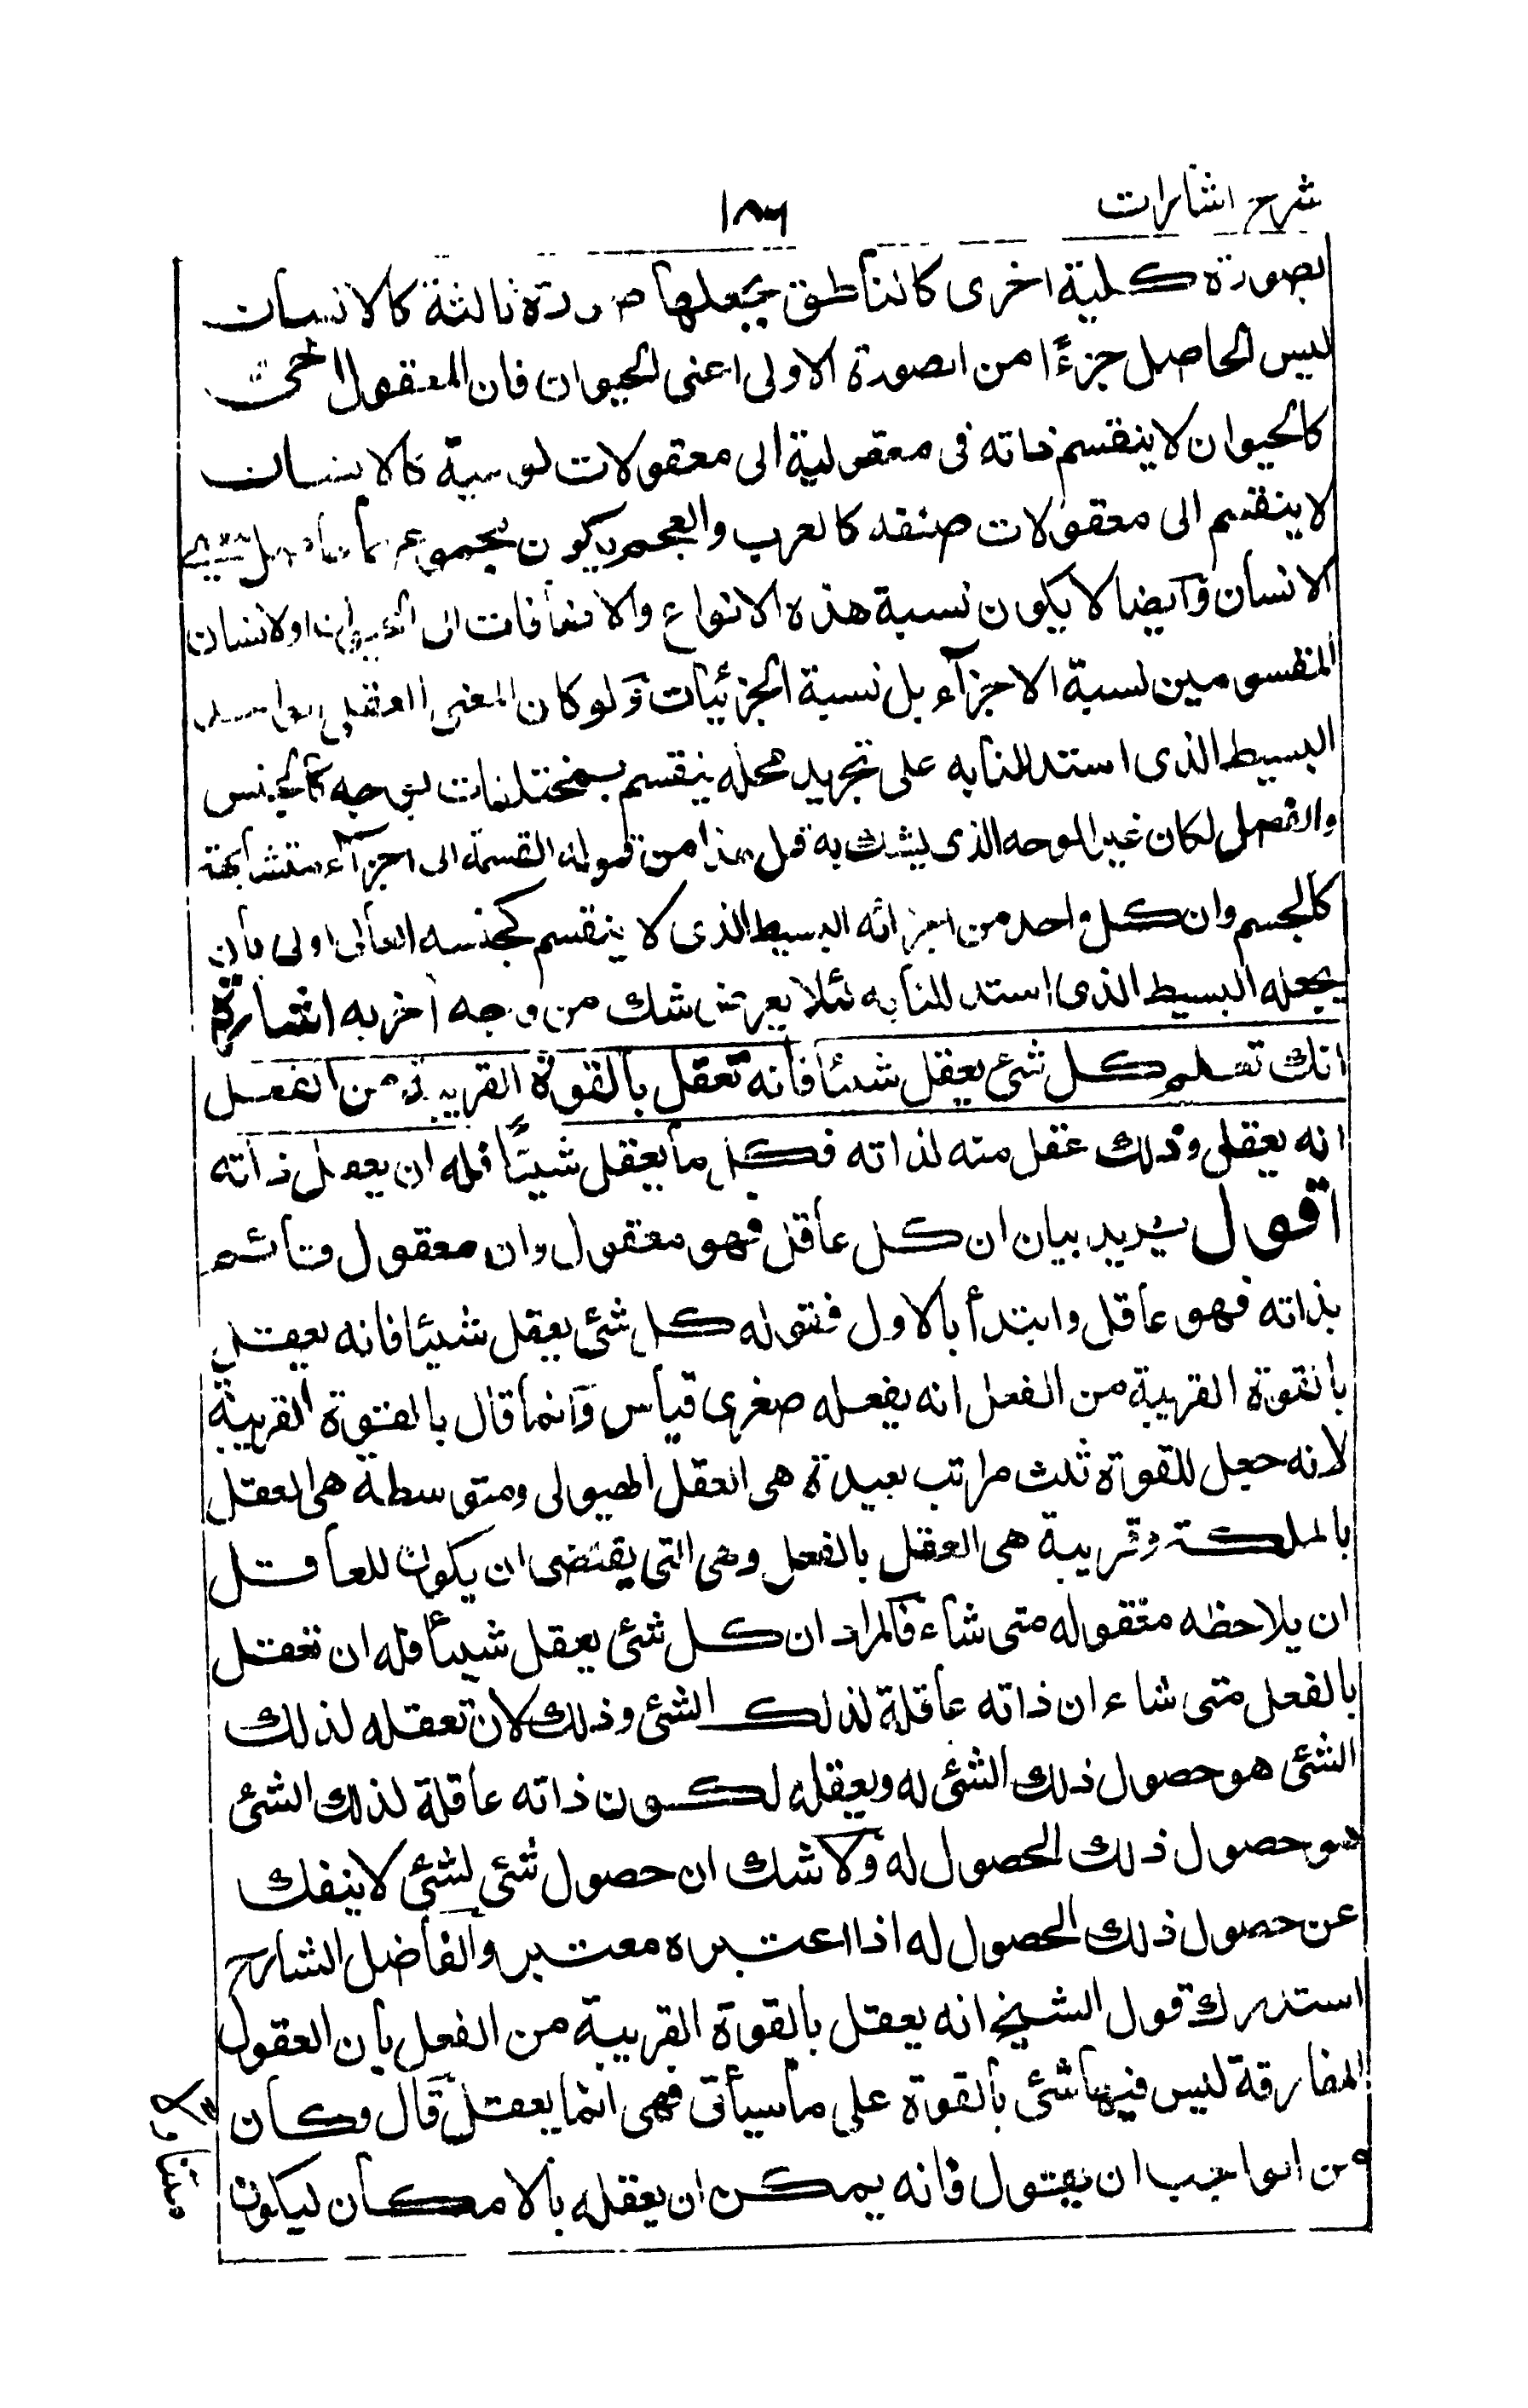 شرح اشارات
١٨٦
بصورة كلية اخرى كالناطق يجعلها صورة ثالثة كالانسان
ليس الحاصل جزءًا من الصورة الاولى اعنى الحيوان فان المعقول
كالحيوان لا ينقسم ذاته فى معقولية الى معقولات كالانسان
لا ينقسم الى معقولات صنفه كالعرب والعجم يكون
الانسان وايضا لا يكون نسبة هذه الانواع والاضافات الى الحيوان او الانسان
المنقسومين نسبة الاجزآء بل نسبة الجزئيات ولو كان المعنى العقلى
البسيط الذى استدللنا به على تجريد محله ينقسم بمختلفات بوجه كالجنس
والفصل لكان غير الوجه الذى يشك به قبل هذا من قبوله القسمة الى اجزآء متشابهة
كالجسم وان كل واحد من اجزائه البسيط الذى لا ينقسم كجنسه العالى اولى بان
يجعله البسيط الذى استدللنا به لئلا يعرض شك من وجه اخر به اشارة
انك تعلم كل شئ يعقل شيئا فانه تعقل بالقوة القريبة من الفعل
انه يعقل وذلك عقل منه لذاته فكل ما يعقل شيئًا فله ان يعقل ذاته
اقول يريد بيان ان كل عاقل فهو معقول وان معقول قائم
بذاته فهو عاقل وابتدأ بالاول فقوله كل شئ يعقل شيئا فانه يعقل
بالقوة القريبة من الفعل انه يفعله صغرى قياس وانما قال بالقوة القريبة
لانه جعل للقوة ثلث مراتب بعيدة هى العقل الهيولى ومتوسطة هى العقل
بالملكة وقريبة هى العقل بالفعل وهى التى يقتضى ان يكون للعاقل
ان يلاحظه معقوله متى شاء فالمراد ان كل شئ يعقل شيئا فله ان تعقل
بالفعل متى شاء ان ذاته عاقلة لذلك الشئ وذلك لان تعقله لذلك
الشئ هو حصول ذلك الشئ له ويعقله لكون ذاته عاقلة لذلك الشئ
هو حصول ذلك الحصول له ولا شك ان حصول شئ لشئ لا ينفك
عن حصول ذلك الحصول له اذا اعتبره معتبر والفاضل الشارح
استدرك قول الشيخ انه يعقل بالقوة القريبة من الفعل بان العقول
المفارقة ليس فيها شئ بالقوة على ما سيأتى فهى انما يعقل قال وكان
من الواجب ان يقول فانه يمكن ان يعقله بالامكان ليكون
متناولا